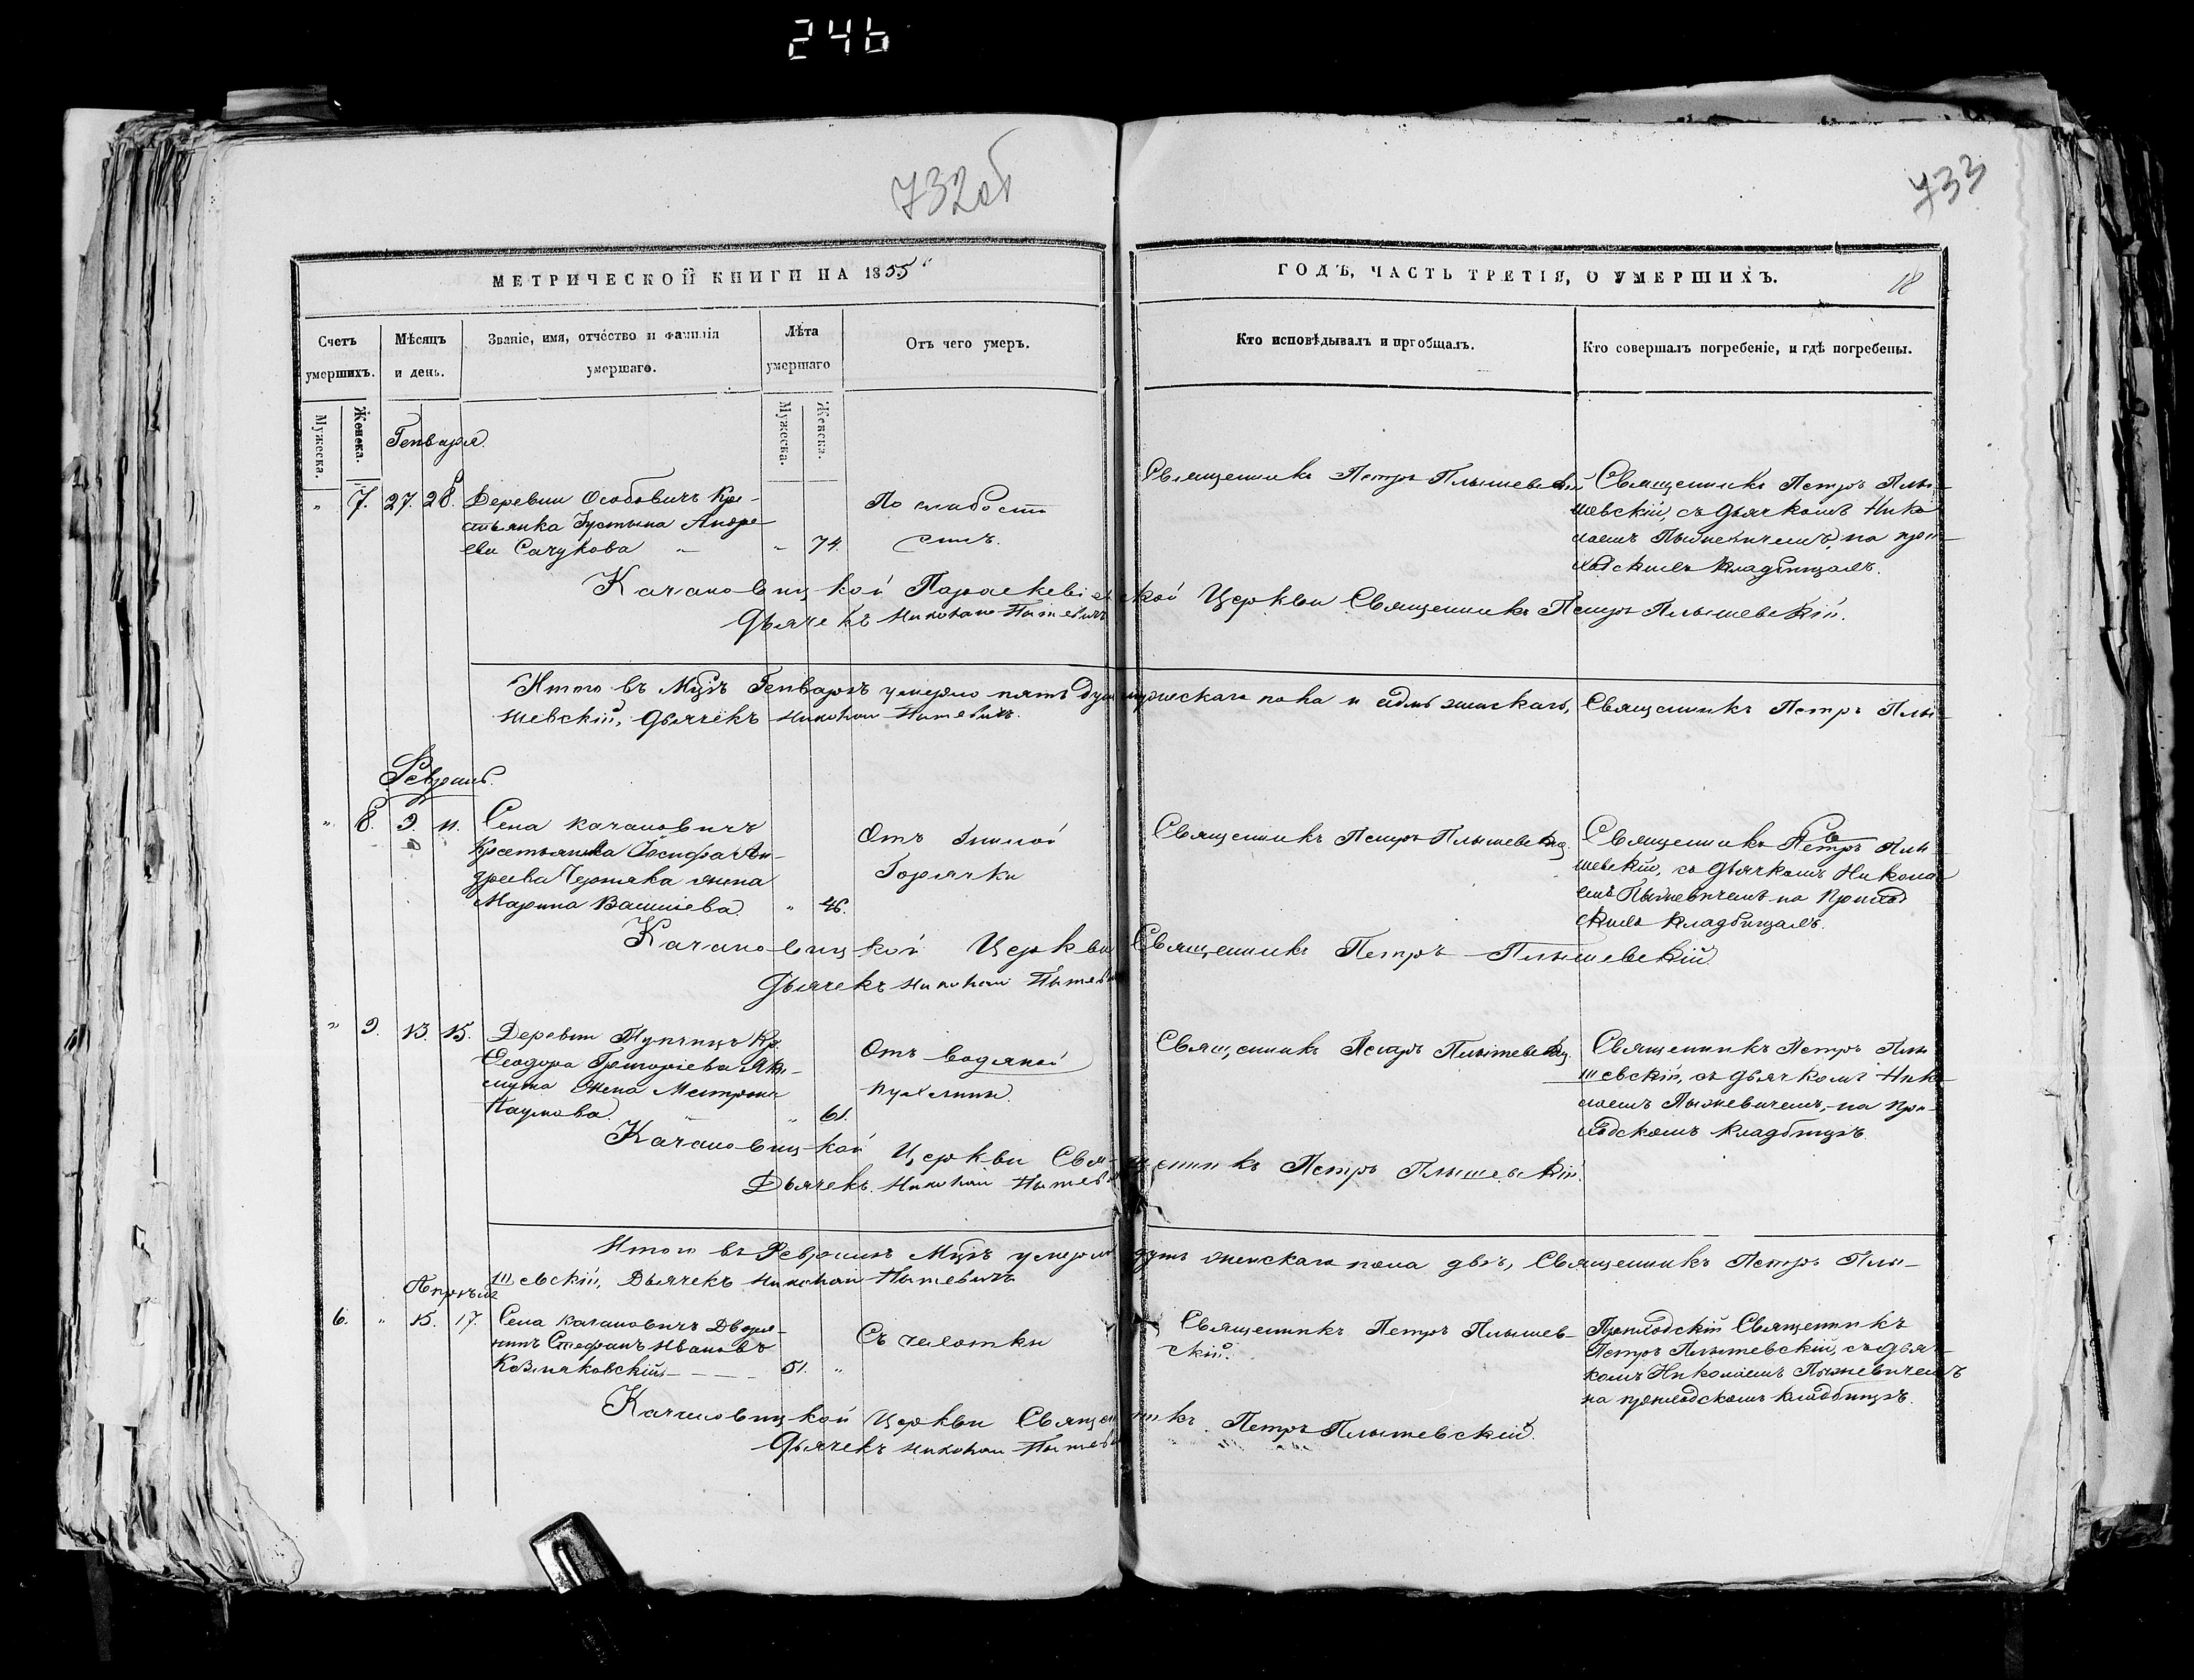 246
732об
733
МЕТРИЧЕСКОЙ КНИГИ НА 1855
ГОДЪ, ЧАСТЬ ТРЕТІЯ, О УМЕРШИХЪ.
18
Счетъ умершихъ.
Мѣсяцъ и день.
Званіе, имя, отчество и фамилія умершаго.
Лѣта умершаго
Отъ чего умеръ.
Кто исповѣдывалъ и пріобщалъ.
Кто совершалъ погребеніе, и гдѣ погребены.
Мужеска.
Женска.
Мужеска.
Женска.
Генваря.
" 7. 27. 28.
Деревни Особовичъ Кре-
стьянка Іустына Андре-
ева Сачукова " 74.
По слабости
силъ.
Священникъ Петръ Плышевскій
Священникъ Петръ Плы-
шевскій, съ дьячкомъ Нико
лаемъ Пыжевичемъ, на при-
ходскихъ кладбищахъ.
Качановицкой Параскевіевской Церкви Священникъ Петръ Плышевскій.
Дьячекъ Николай Пыжевичъ
Итого въ Мцѣ Генварѣ умерло пять душъ мужескаго пола и седмь женскаго, Священникъ Петръ Плы-
шевскій, Дьячекъ Николай Пыжевичъ.
Февраль.
" 8. 9. 11.
Села Качановичъ
Крестьянина Іосифа Ан-
дреева Черняка жена
Марина Васильева. " 46.
Отъ гнилой
Горячки
Священникъ Петръ Плышевскій
Священникъ Петръ Плы
шевскій, съ дьячкомъ Никола
емъ Пыжевичемъ на приход
скихъ кладбищахъ.
Качановицкой Церкви Священникъ Петръ Плышевскій
Дьячекъ Николай Пыжевичъ
" 9. 13. 15.
Деревни Купчицъ Кр.
Ѳеодора Григоріева
жена Матрона
Наумова. " 61.
Отъ водяной
пухлины.
Священникъ Петръ Плышевскій
Священникъ Петръ Плы
шевскій, съ дьячкомъ Нико
лаемъ Пыжевичемъ, на при-
ходскомъ кладбищѣ.
Качановицкой Церкви Священникъ Петръ Плышевскій.
Дьячекъ Николай Пыжевичъ
Итого въ Февралѣ Мцѣ умерло душъ женскаго пола двѣ, Священникъ Петръ Плы-
шевскій, Дьячекъ Николай Пыжевичъ
Апрѣль
6. " 15. 17.
Села Качановичъ Дворя-
нинъ Стефанъ Ивановъ
Козляковскій 51. "
Съ чехотки
Священникъ Петръ Плышев-
скій.
Приходскій Священникъ
Петръ Плышевскій, съ дьяч-
комъ Николаемъ Пыжевичемъ
на приходскомъ кладбищѣ.
Качановицкой Церкви Священникъ Петръ Плышевскій.
Дьячекъ Николай Пыжевичъ